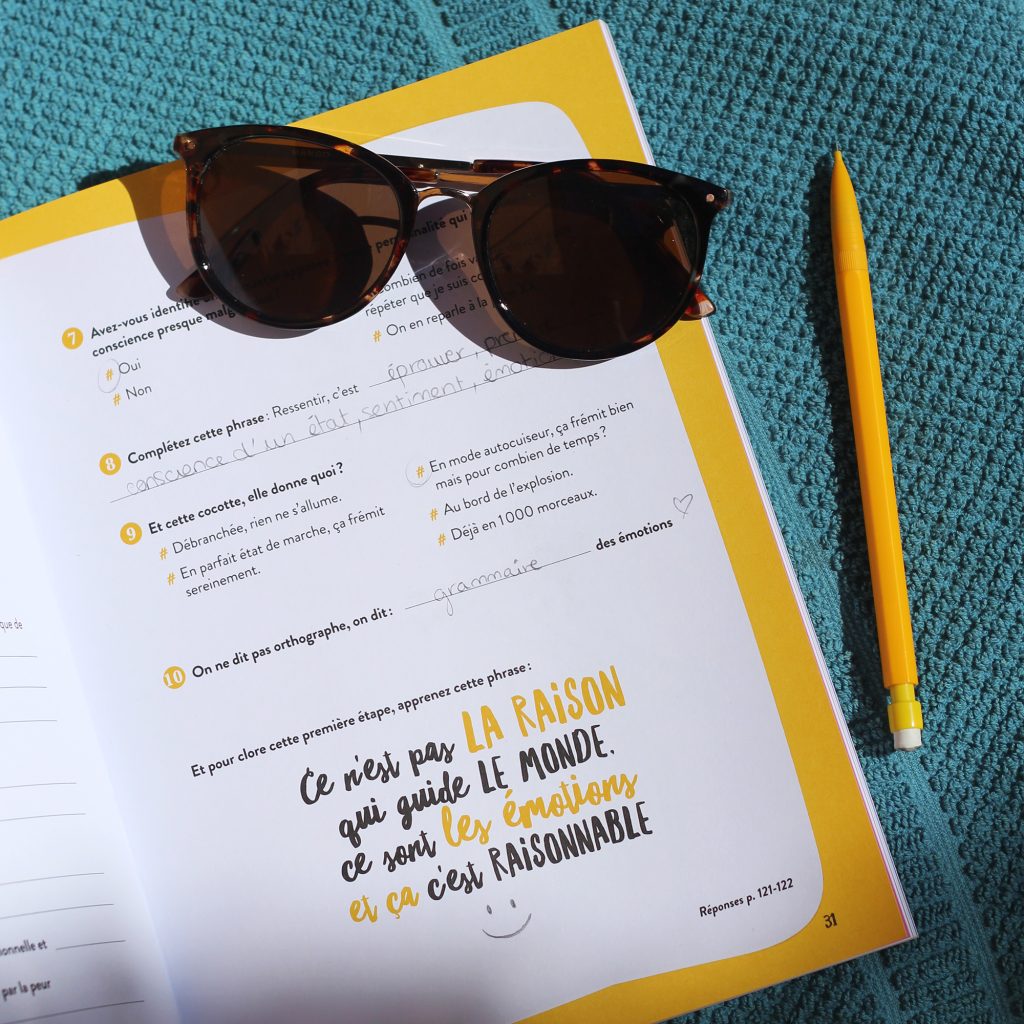 personnalité qui
combien de fois
répéter que je suis
# On en reparle à la
7 Avez-vous identifié
conscience presque
# Oui
# Non
8 Complétez cette phrase : Ressentir, c'est éprouver,
conscience d'un état, sentiment,
9 Et cette cocotte, elle donne quoi ?
# Débranchée, rien ne s'allume.
# En parfait état de marche, ça frémit
sereinement.
# En mode autocuiseur, ça frémit bien
mais pour combien de temps ?
# Au bord de l'explosion.
# Déjà en 1 000 morceaux.
10 On ne dit pas orthographe, on dit : grammaire des émotions
Et pour clore cette première étape, apprenez cette phrase :
Ce n'est pas LA RAISON
qui guide LE MONDE.
ce sont les émotions
et ça c'est RAISONNABLE
Réponses p. 121-122
31
que de
onnelle et
par la peur